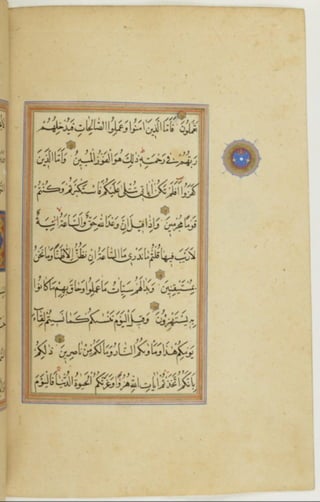 تعملون فاما الذين امنوا وعملوا الصالحات فيدخلهم
ربهم في رحمته ذلك هو الفوز المبين واما الذين
كفروا افلم تكن اياتي تتلى عليكم فاستكبرتم وكنتم
قوما مجرمين واذا قيل ان وعد الله حق والساعة
لا ريب فيها قلتم ما ندري ما الساعة ان نظن الا ظنا وما نحن
بمستيقنين وبدا لهم سيئات ما عملوا وحاق بهم ما كانوا
به يستهزؤن وقيل اليوم ننسيكم كما نسيتم لقاء
يومكم هذا وماويكم النار وما لكم من ناصرين ذلكم
بانكم اتخذتم ايات الله هزوا وغرتكم الحيوة الدنيا فاليوم